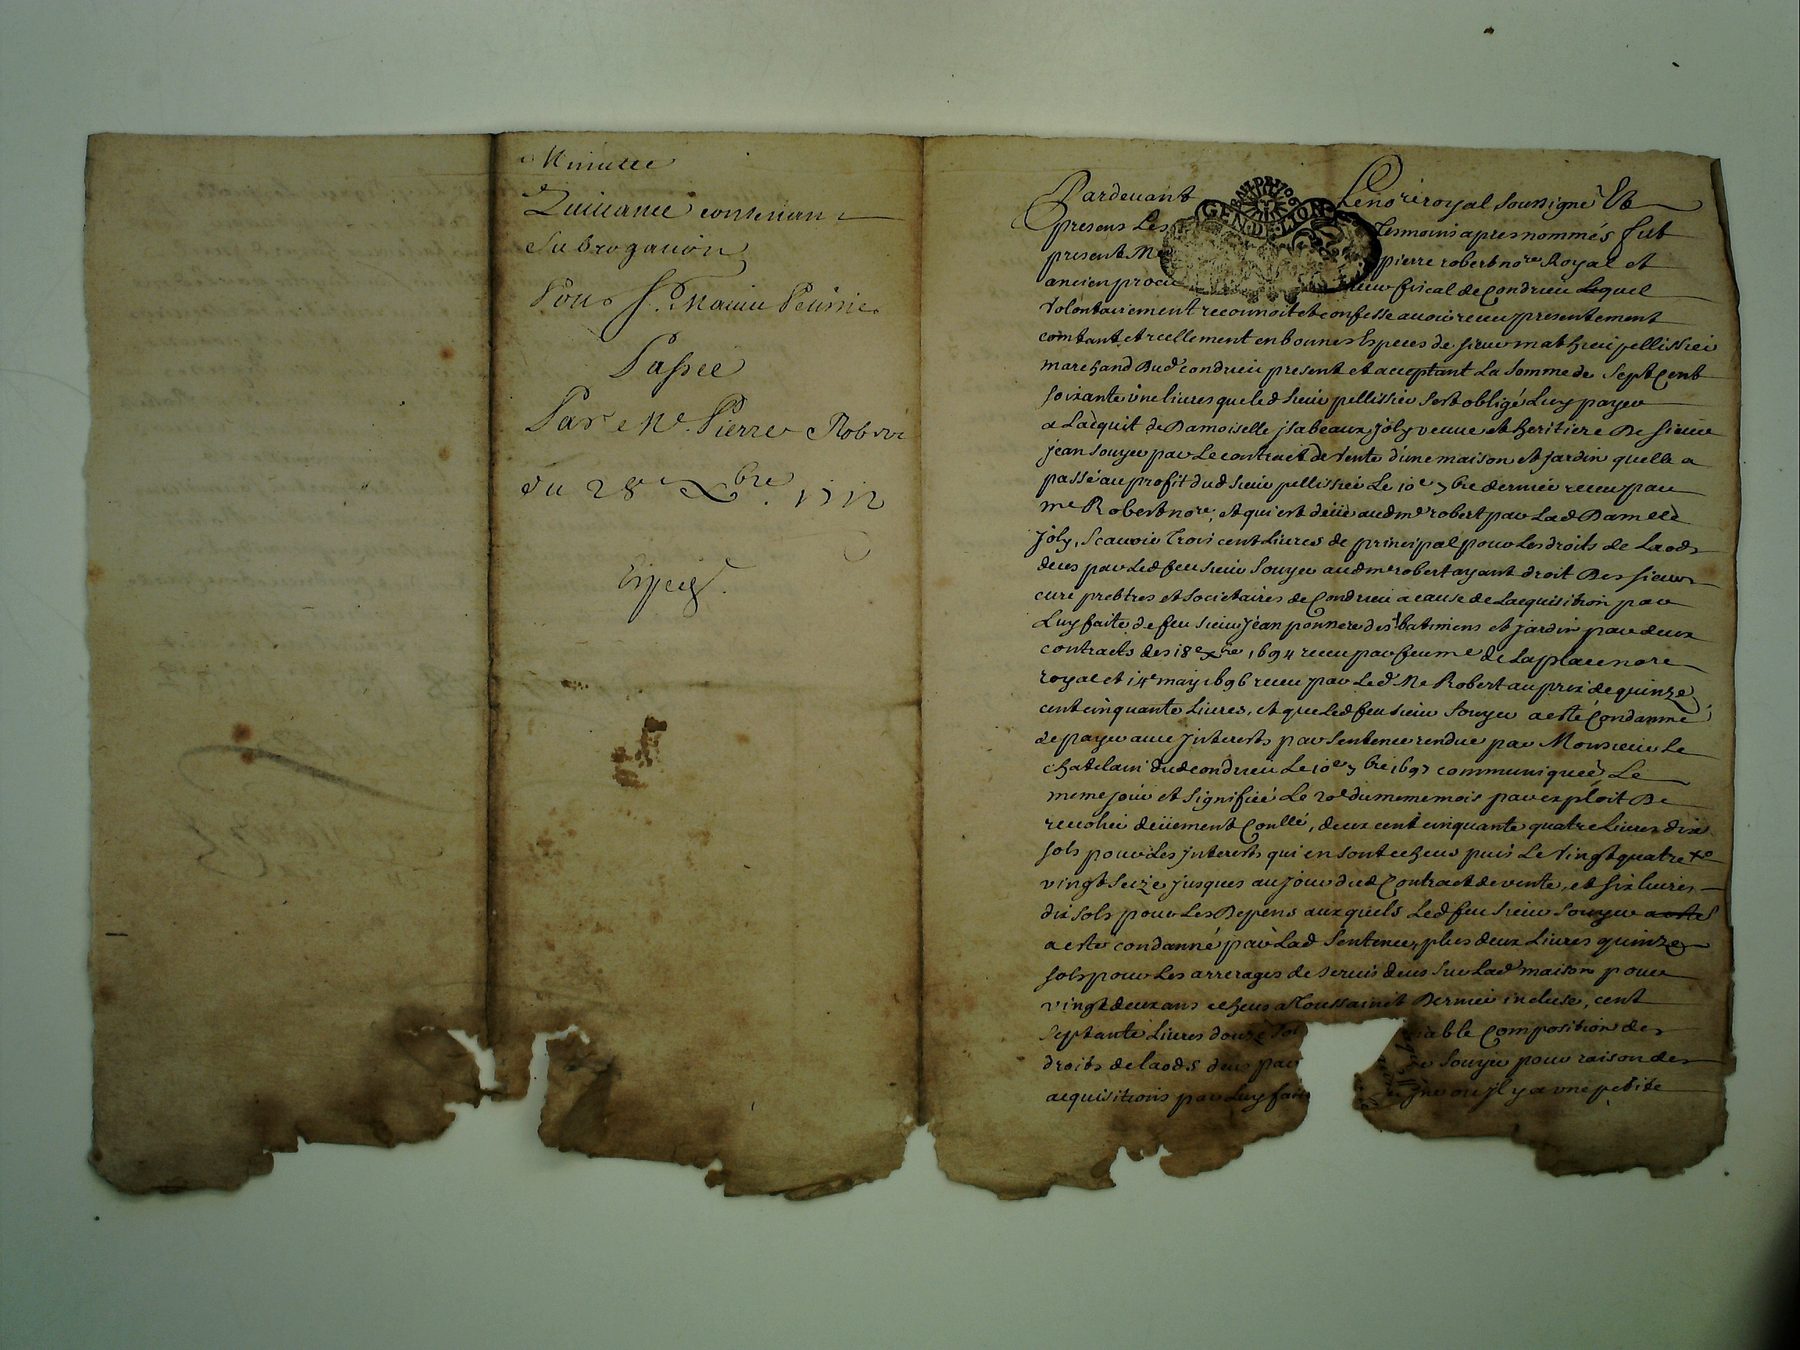 Minutte
Quittance contenant
Subrogation
Pour Sr. Mathieu Pellissie.
Passée
Par Me. Pierre Robert
du 28e Xbre. 1712
Expeié.
GEN. DE. LION
Pardevant Le nore royal soussigné Et
presens Les Tesmoins apres nommés fut
present Me pierre robert nore Royal et
ancien procu reur fiscal de Condrieu Lequel
Volontairement reconnoit et confesse avoir receu presentement
contant et reellement en bonnes Especes de sieur mathieu pellissier
marchand dud. condrieu present et acceptant La somme de sept Cent
soixante une livres que led sieur pellissier s'est obligé Luy payer
a Lacquit de Damoiselle jsabeaux joly veuve et heritiere De sieur
jean souyer par Le contract de Vente d'une maison et jardin quelle a
passé au profit dud sieur pellissier Le 10e 7bre dernier receu par
me Robert nore, et qui est deüe aud me robert par Lad Damelle
Joly, Scavoir Trois cent Livres de principal pour Les droits de Laods
deus par Led feu sieur souyer aud me robert ayant droit Des sieurs
curé prebtres et societaires de Condrieu a cause de Lacquisition par
Luy faite de feu sieur jean ponnere des batimens et jardin par deux
contracts des 18e xbre 1694 receu par feu me de Laplace nore
royal et 14e may 1696 receu par Led. Me Robert au prix de quinze
cent cinquante Livres, et que Led feu sieur souyer a esté Condanmé
de payer avec Jnterests par sentence rendue par Monsieur Le
chatelain dud condrieu Le 10e 7bre 1697 communiquée Le
meme jour et signifiée Le 20e du meme mois par exploit De
deüement Conllé, deux cent cinquante quatre Livres dix
sols pour Les jnterests qui en sont echeus puis Le Vingt quatre
vingt seize jusques au jour dud Contract de vente, et six livres
dix sols pour Les Depens auxquels Led feu sieur souyer
a este condanné par Lad Sentence, plus deux Livres quinze
sols pour Les arrerages de servis deus sur Lad. maison pour
vingt deux ans echeus a Toussainct Dernier incluse, cent
septante Livres douze sol iable Composition des
droits de laods deus par souyer pour raison des
acquisitions par Luy fai gne ou jl y a une petite